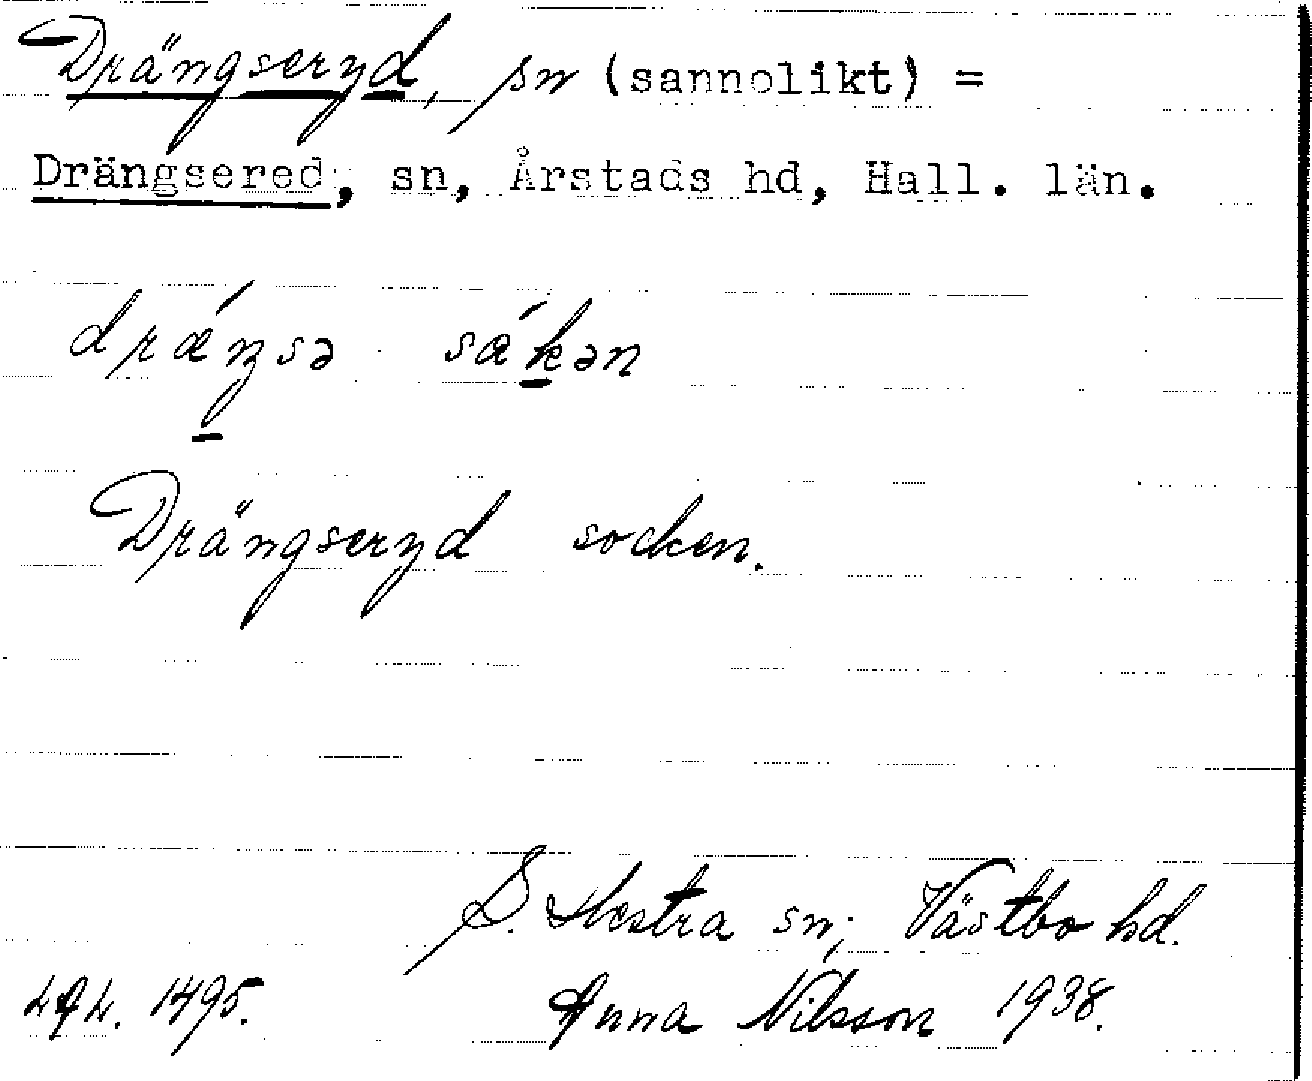 Drängseryd, sn (sannolikt) =
Drängsered, sn, Årstads hd, Hall. län.
drǽŋsə sǽkən
Drängseryd socken.
S. Hestra sn; Västbo hd.
1495. Anna Nilsson 1938.